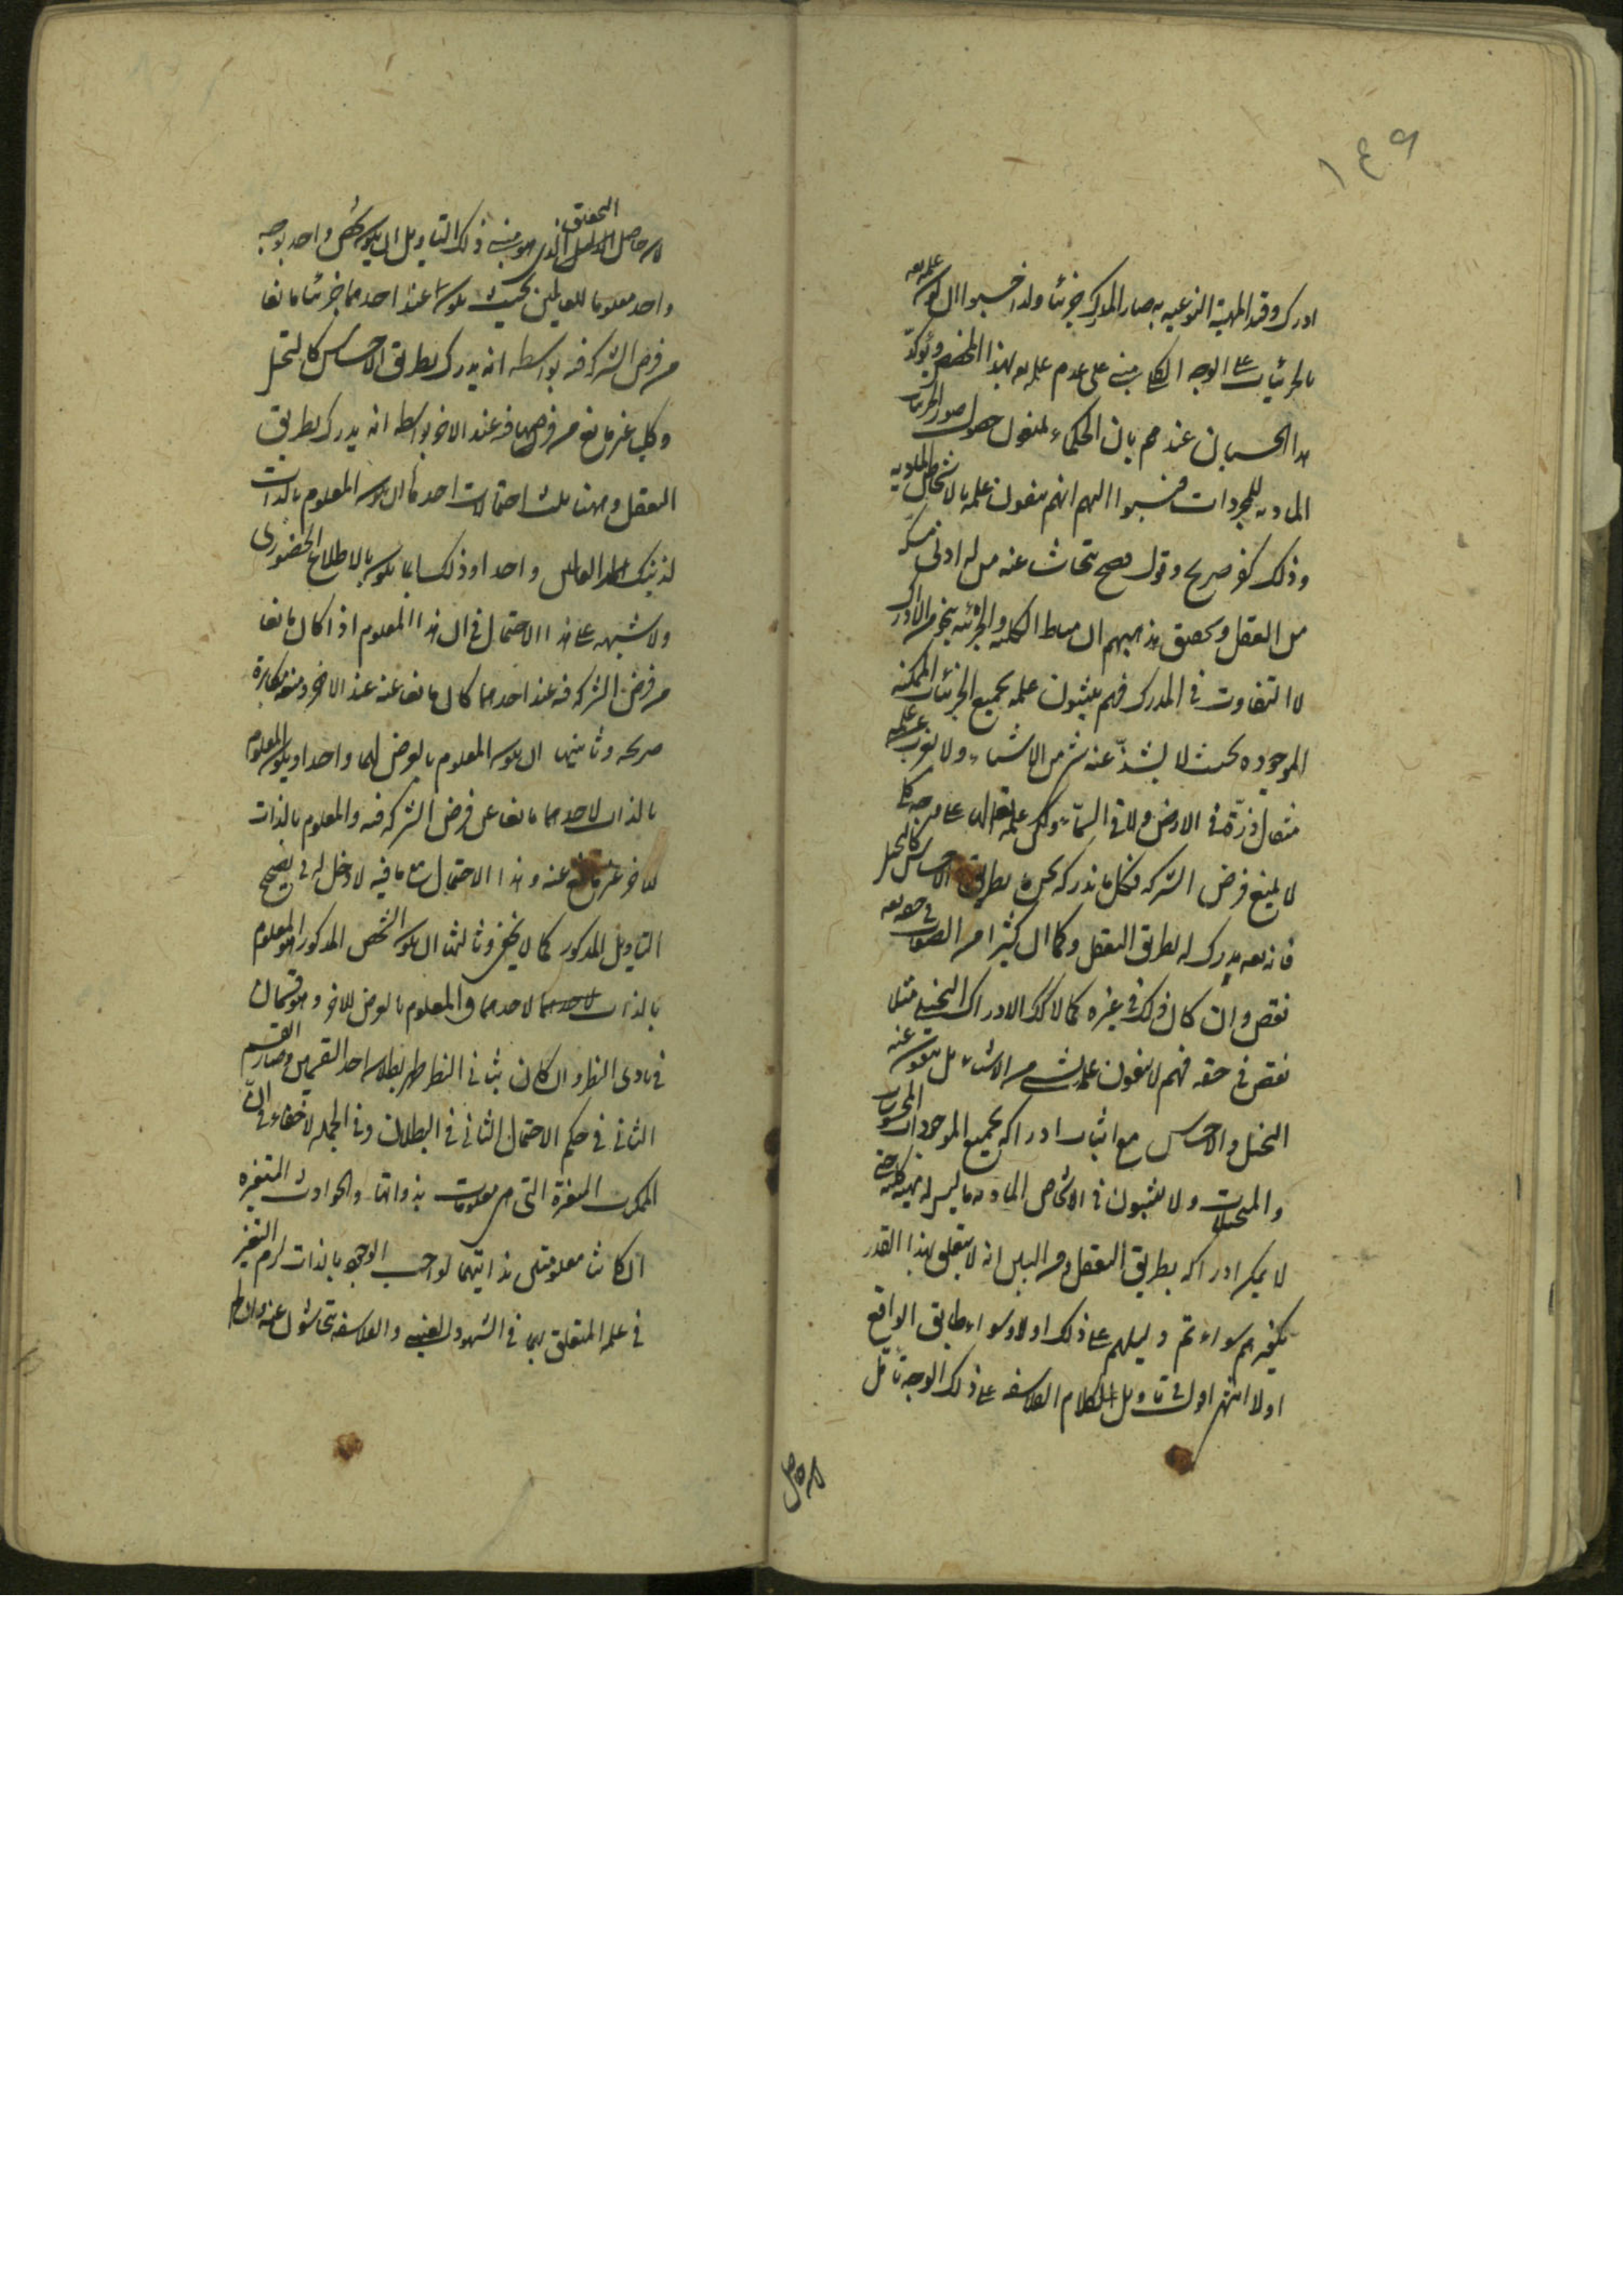 ١٤٩
ادرك وقد المهية النوعيه به صار المدرك جزئيا ولذا حسبوا ان كون علمه تعه
بالجزئيات على الوجه الكلي مبني على عدم علمه تعه بهذا المخصص ويؤكد
هذا الحسبان عندهم بان الحكماء يمنعون حصول صور الجزئيات
الماديه للمجردات فنسبوا اليهم انهم ينفون علمه بالاشخاص الماديه
وذلك كفر صريح وقول قبيح يتحاشى عنه من له ادنى مسكه
من العقل وتحقيق مذهبهم ان مناط الكليه والجزئيه نحو من الادراك
لا التفاوت في المدرك فهم يثبتون علمه بجميع الجزئيات الممكنه
الموجوده بحيث لا يشذ عنه شئ من الاشياء ولا يعزب عن علمه
مثقال ذرة في الارض ولا في السماء ولكن علمه تعالى على وجه كلي
لا يمنع فرض الشركه فكل ما ندركه نحن بطريق الاحساس كالتخيل
فانه تعه يدركه بطريق التعقل وكما ان كثيرا من الصفات في حقه تعه
نقص وان كان ذلك في غيره كمالا كذلك الادراك التخيلي مثلا
نقص في حقه فهم لا ينفون علمه بشئ من الاشياء بل ينفون عنه
التخيل والاحساس مع اثبات ادراكه بجميع الموجودات المحسوسات
والمتخيلات ولا يثبتون في الاشخاص الماديه ما ليس له مهية كليه حتى
لا يمكن ادراكه بطريق التعقل ومن البين انه لا يتعلق بهذا القدر
تكفيرهم سواء تم دليلهم على ذلك اولا وسواء طابق الواقع
اولا انتهى اقول في تاويل كلام الفلاسفه على ذلك الوجه تامل
لان حاصل
لان حاصل التحقيق الذي هو مبنى ذلك التاويل ان يكون شخص واحد بوجه
واحد معلوما للعالمين بحيث يكون عند احدهما جزئيا مانعا
من فرض الشركه فيه بواسطه انه يدرك بطريق الاحساس كالتخيل
وكليا غير مانع من فرضها فيه عند الاخر بواسطه انه يدرك بطريق
التعقل وههنا ثلث احتمالات احدها ان يكون المعلوم بالذات
لذينك العالمين واحدا وذلك انما يكون بالاطلاع الحضوري
ولا شبهه على هذا الاحتمال في ان هذا المعلوم اذا كان مانعا
من فرض الشركه فيه عند احدهما كان مانعا عنه عند الاخر ومنعه مكابرة
صريحه وثانيها ان يكون المعلوم بالعرض لهما واحدا ويكون المعلوم
بالذات لاحدهما مانعا عن فرض الشركه فيه والمعلوم بالذات
للاخر غير مانع عنه وهذا الاحتمال مع ما فيه لا دخل له في تصحيح
التاويل المذكور كما لا يخفى وثالثها ان يكون الشخص المذكور هو المعلوم
بالذات لاحدهما والمعلوم بالعرض للاخر وهو قسمان
في بادى النظر وان كان بثاني النظر ظهر بطلان احد القسمين وصار القسم
الثاني في حكم الاحتمال الثاني في البطلان وفي الجمله لا خفاء في ان
الممكنات المتغيرة التي هي معلومات بذواتها والحوادث المتغيره
ان كانت معلومة بذاتيتها لواجب الوجود بالذات لزم التغير
في علمه المتعلق بها في الشهود العيني والفلاسفه يتحاشون عنه